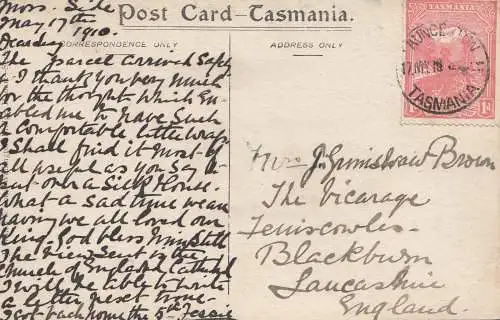 Post Card–Tasmania.
CORRESPONDENCE ONLY
ADDRESS ONLY
TASMANIA
1d
TASMANIA
Moss Side
May 17th
1910.
The parcel arrived safely
& I thank you very much
for the thought which En
abled me to have such
a comfortable little wrap
I shall find it most
all useful as you say to
put over a Silk House.
What a sad time we are
having we all loved our
King. God bless him still
The View sent is the
Church of England Cathedral
I will be able to write
a letter next time
I got back home the 5th Jessie
Mrs J. Grimshaw Brown
The Vicarage
Feniscowles
Blackburn
Lancashire
England.